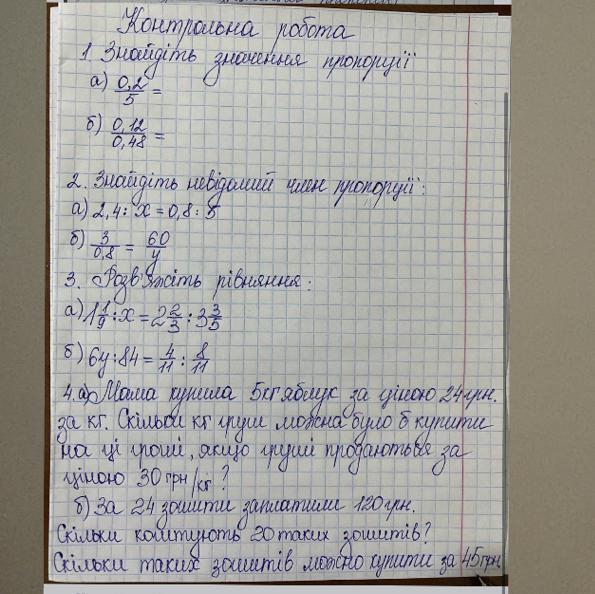 Контрольна робота
1. Знайдіть значення пропорції
а) 0,2/5 =
б) 0,12/0,48 =
2. Знайдіть невідомий член пропорції:
а) 2,4 : x = 0,8 : 5
б) 3/0,8 = 60/y
3. Розв'яжіть рівняння:
а) 1 1/9 : x = 2 2/3 : 3 3/5
б) 6y : 84 = 4/11 : 8/11
4. а) Мама купила 5кг яблук за ціною 24 грн.
за кг. Скільки кг груш можна було б купити
на ці гроші, якщо груші продаються за
ціною 30 грн/кг?
б) За 24 зошити заплатили 120 грн.
Скільки коштують 20 таких зошитів?
Скільки таких зошитів можно купити за 45 грн